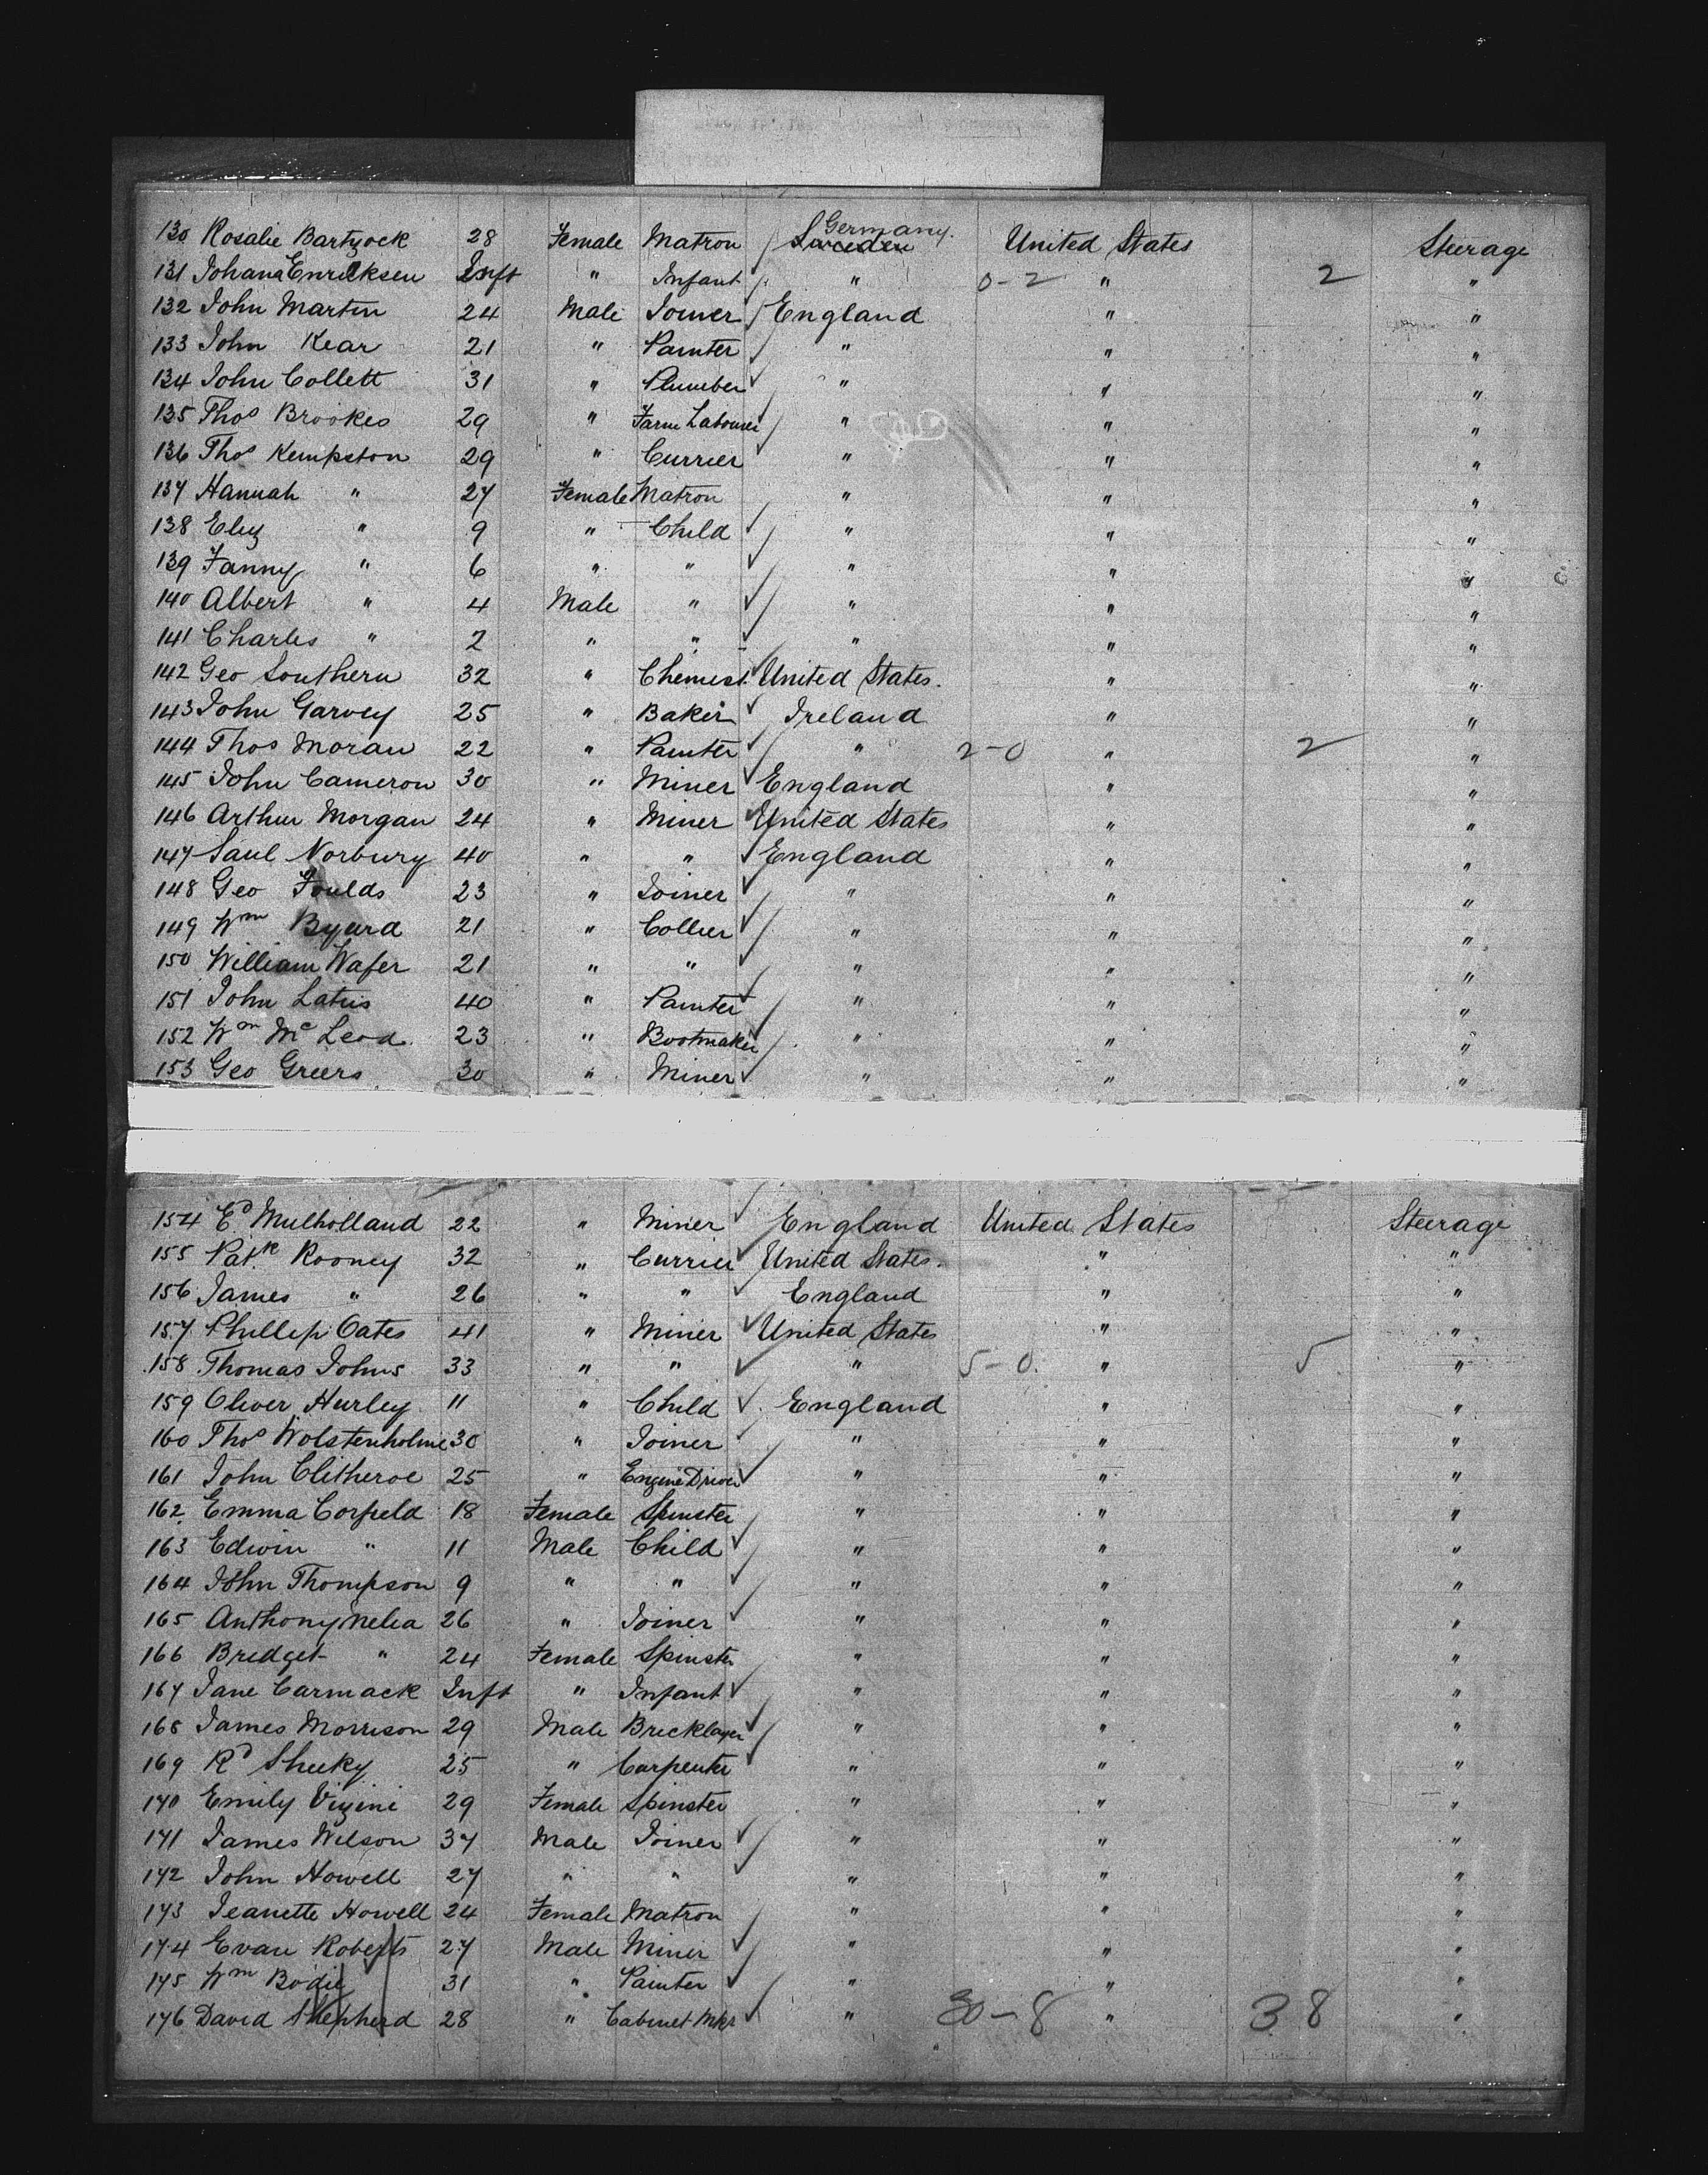 130 Rosalie Bartyock 28 Female Matron Sweden Germany. United States Steerage
131 Johana Enricksen Inft " Infant " 0-2 " 2 "
132 John Martin 24 Male Joiner England " "
133 John Kear 21 " Painter " " "
134 John Collett 31 " Plumber " " "
135 Thos Brookes 29 " Farm Labourer " " "
136 Thos Kempston 29 " Currier " " "
137 Hannah " 27 Female Matron " " "
138 Eliz " 9 " Child " " "
139 Fanny " 6 " " " " "
140 Albert " 4 Male " " " "
141 Charles " 2 " " " " "
142 Geo Southern 32 " Chemist United States. " "
143 John Garvey 25 " Baker Ireland " "
144 Thos Moran 22 " Painter " 2-0 " 2 "
145 John Cameron 30 " Miner England " "
146 Arthur Morgan 24 " Miner United States " "
147 Saul Norbury 40 " " England " "
148 Geo Foulds 23 " Joiner " " "
149 Wm Byard 21 " Collier " " "
150 William Wafer 21 " " " " "
151 John Latus 40 " Painter " " "
152 Wm McLeod 23 " Bootmaker " " "
153 Geo Greers 30 " Miner " " "
154 Ed Mulholland 22 " Miner England United States Steerage
155 Patk Rooney 32 " Currier United States. " "
156 James " 26 " " England " "
157 Phillip Oates 41 " Miner United States " "
158 Thomas Johns 33 " " " 5-0 " 5 "
159 Oliver Hurley 11 " Child England " "
160 Thos Wolstenholme 30 " Joiner " " "
161 John Clitheroe 25 " Engine Driver " " "
162 Emma Corfield 18 Female Spinster " " "
163 Edwin " 11 Male Child " " "
164 John Thompson 9 " " " " "
165 Anthony Melia 26 " Joiner " " "
166 Bridget " 24 Female Spinster " " "
167 Jane Carmack Inft " Infant " " "
168 James Morrison 29 Male Bricklayer " " "
169 Rd Sheeky 25 " Carpenter " " "
170 Emily Vizine 29 Female Spinster " " "
171 James Wilson 37 Male Joiner " " "
172 John Howell 27 " " " " "
173 Jeanette Howell 24 Female Matron " " "
174 Evan Roberts 27 Male Miner " " "
175 Wm Bodie 31 " Painter " " "
176 David Shepherd 28 " Cabinet Mkr " 30-8 " 38 "